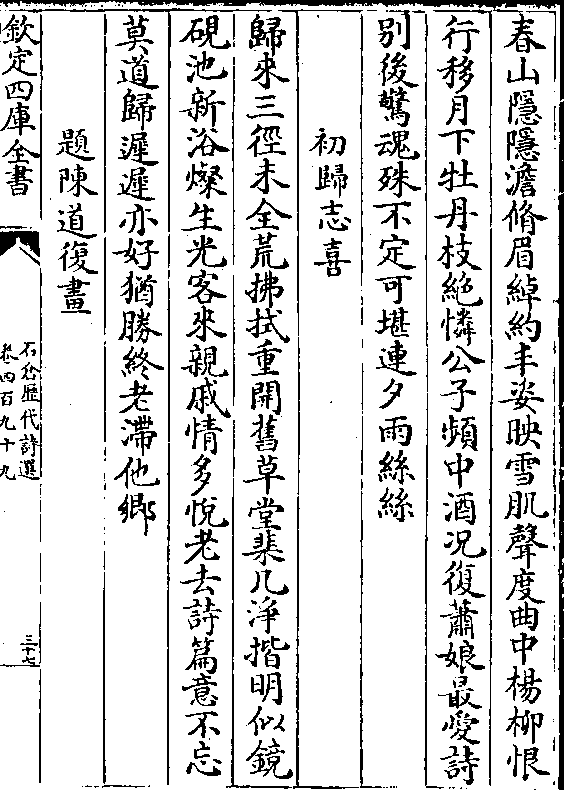 春山隱隱澹脩眉綽約丰姿映雪肌聲度曲中楊柳恨
行移月下牡丹枝絶憐公子頻中酒况復蕭娘最愛詩
别後驚魂殊不定可堪連夕雨絲絲
初歸志喜
歸來三徑未全荒拂拭重開舊草堂棐几淨揩明似鏡
硯池新浴燦生光客來親戚情多悅老去詩篇意不忘
莫道歸遲遲亦好猶勝終老滯他鄉
題陳道復畫
欽定四庫全書
石倉歷代詩選
卷四百九十九
三十七